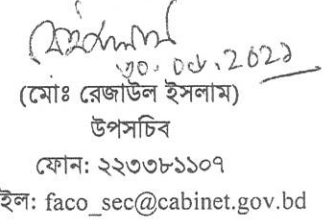 ৩০.০৬.2021
(মোঃ রেজাউল ইসলাম)
উপসচিব
ফোন: ২২৩৩৮১১০৭
ইল: faco_sec@cabinet.gov.bd